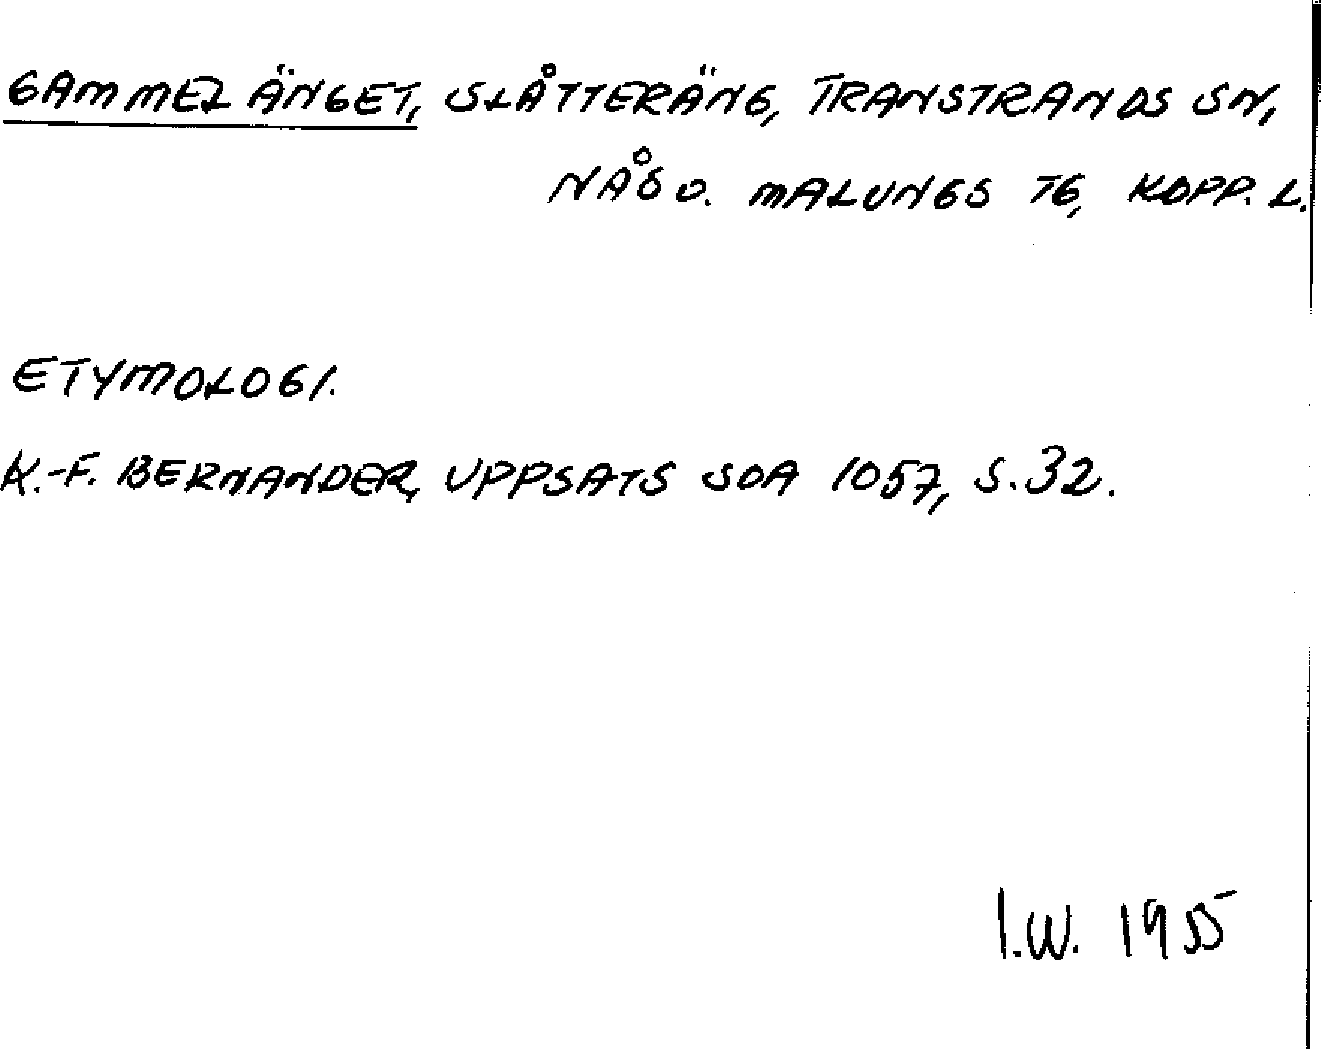 GAMMELÄNGET, SLÅTTERÄNG, TRANSTRANDS SN,
NÅS O. MALUNGS TG, KOPP. L.
ETYMOLOGI.
K.-F. BERNANDER, UPPSATS SOA 1057, S. 32.
I.W. 1955